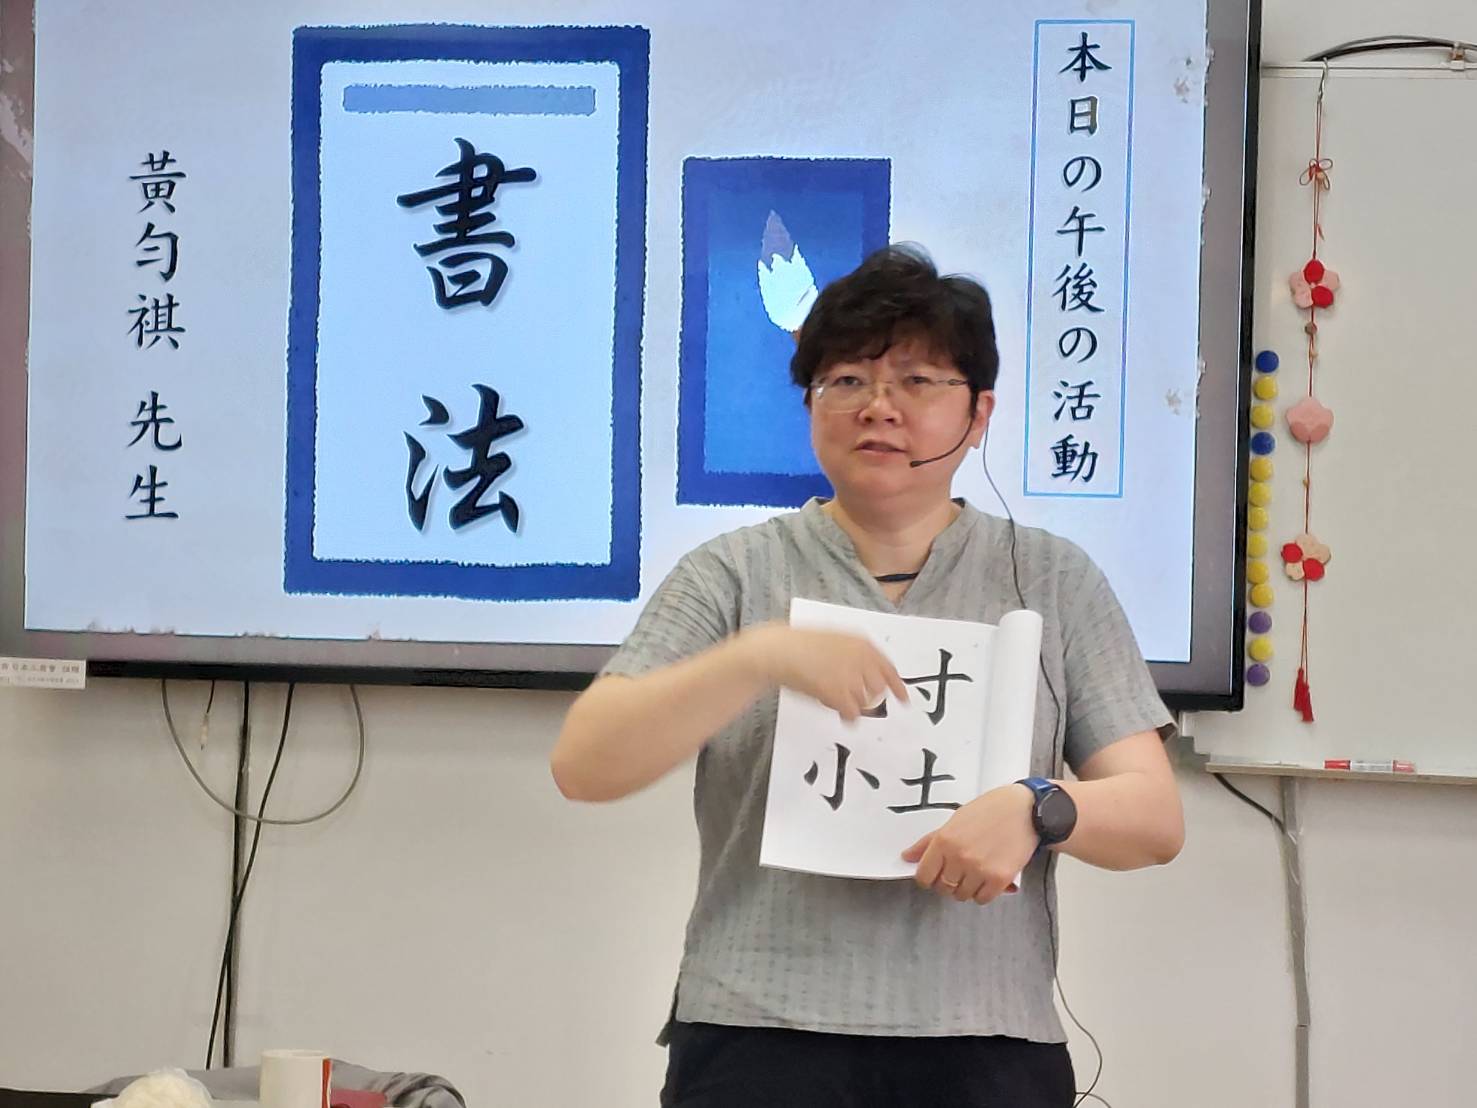 本日の午後の活動
書法
黃勻祺 先生
寸
小土